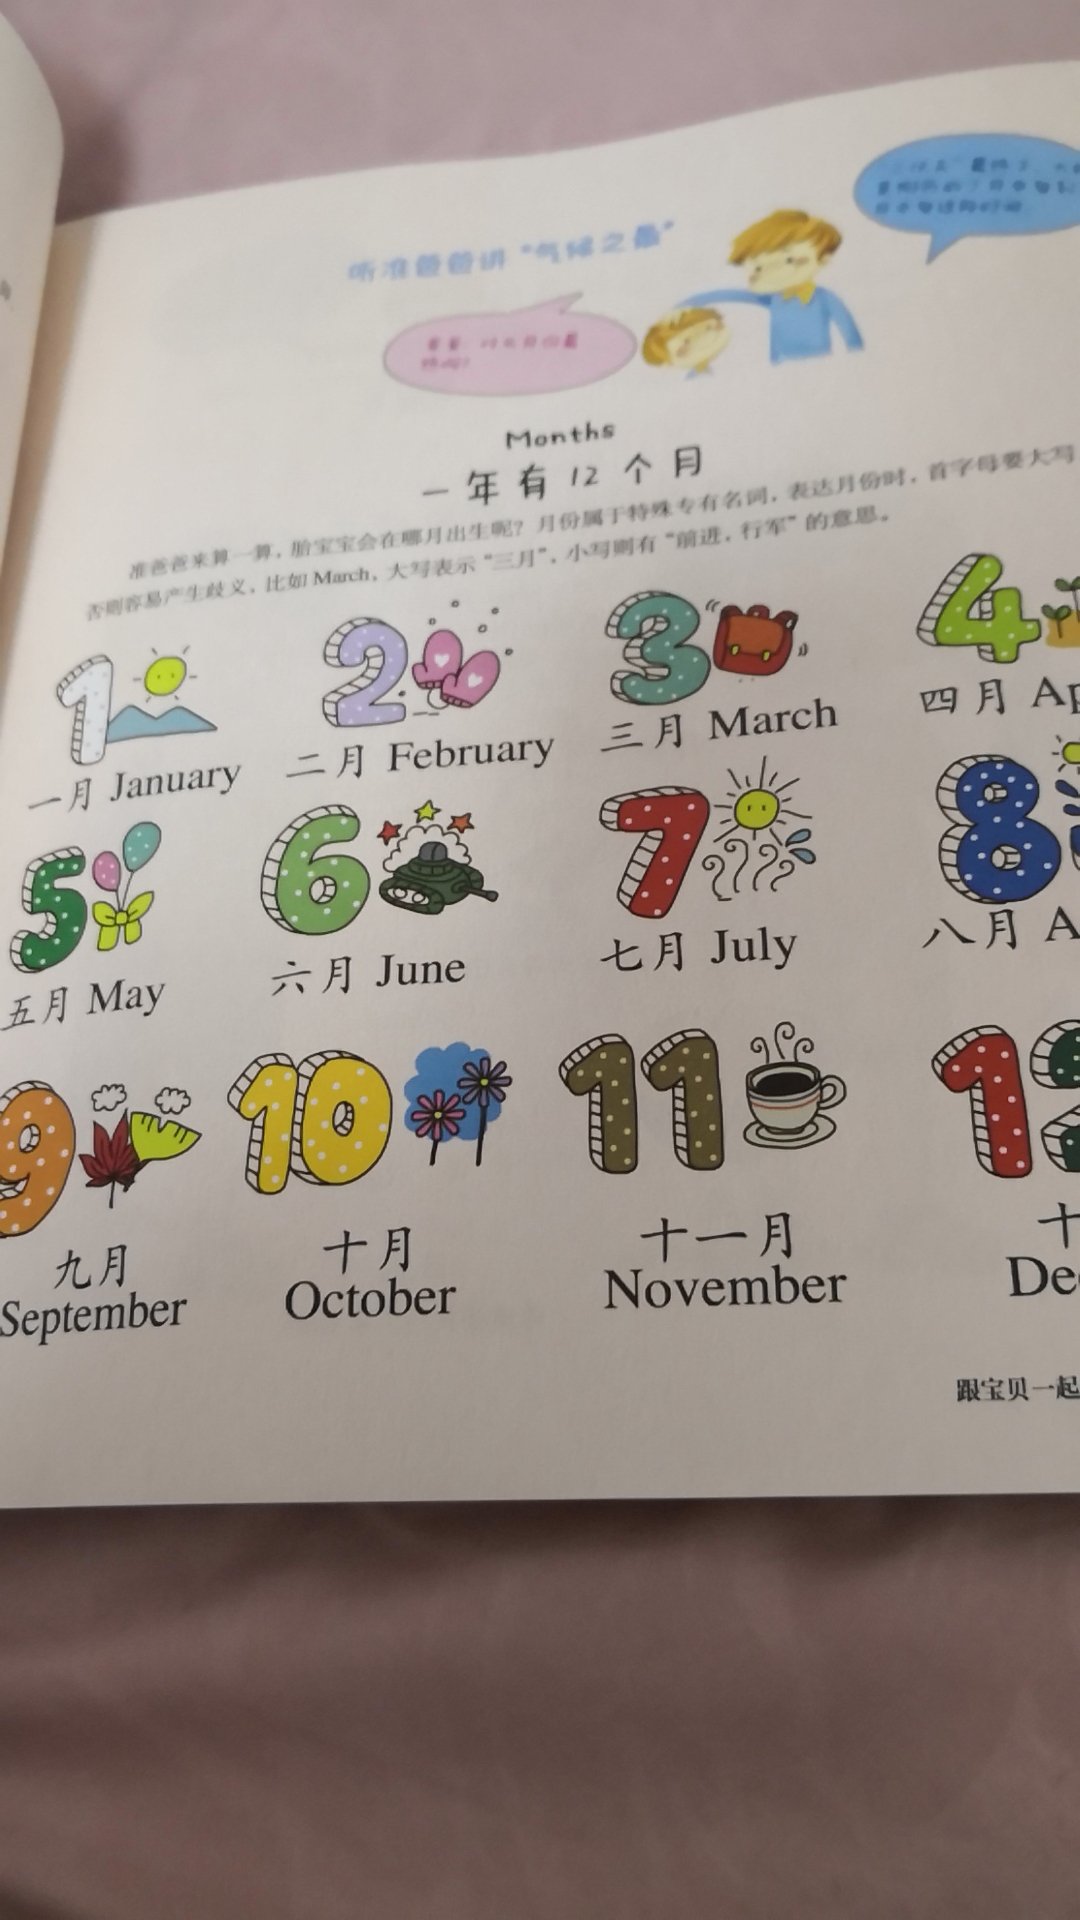 听准爸爸讲“气候之最”
Months
一年有12个月
准爸爸来算一算，胎宝宝会在哪月出生呢？月份属于特殊专有名词，表达月份时，首字母要大写
否则容易产生歧义，比如 March，大写表示“三月”，小写则有“前进，行军”的意思。
1
2
3
4
一月 January
二月 February
三月 March
四月 Ap
5
6
7
8
五月 May
六月 June
七月 July
八月 A
9
10
11
12
九月
September
十月
October
十一月
November
十
De
跟宝贝一起